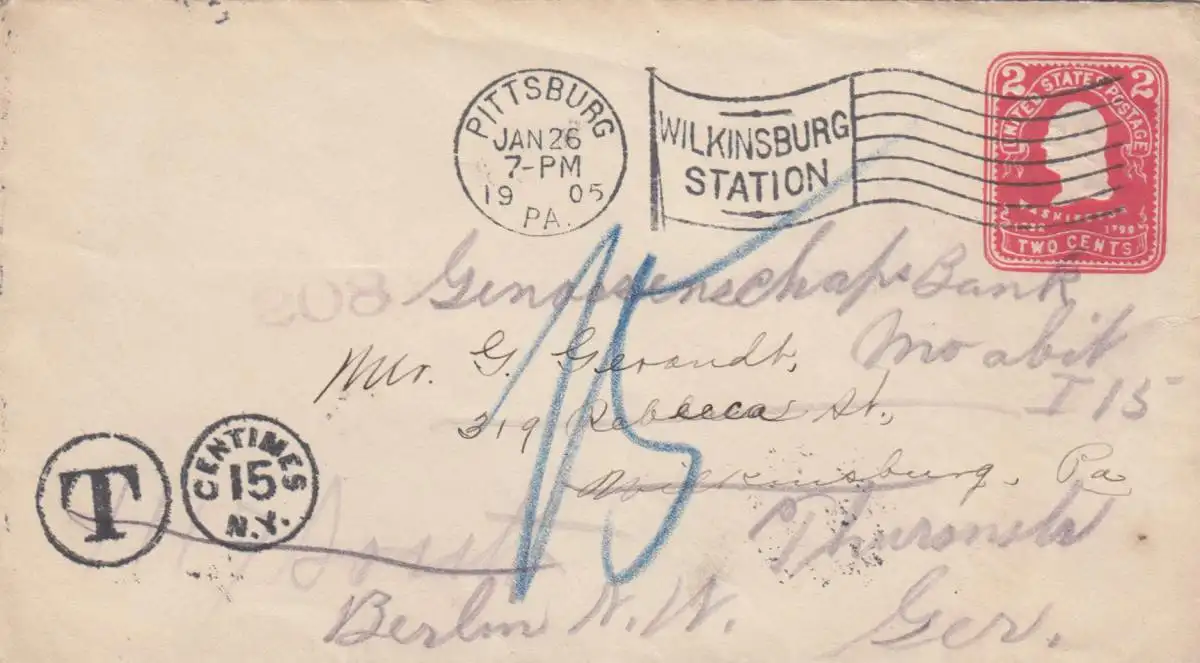 PITTSBURG
JAN 26
7-PM
19 05
PA.
WILKINSBURG
STATION
2 2
UNITED STATES POSTAGE
WASHINGTON
1732 1799
TWO CENTS
Genossenschafs Bank
Moabit
I 15
Mr. G. Gerandt,
319 Rebbecca St.,
Wilkinsburg, Pa
15
T
CENTIMES
15
N.Y.
Berlin N.W. Ger.